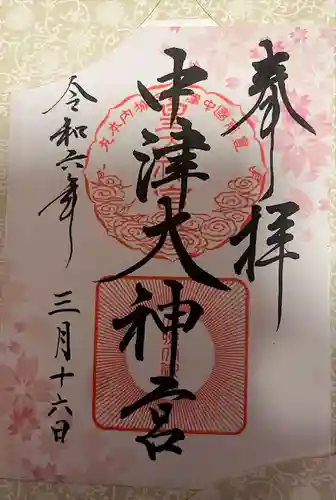 奉拝
中津大神宮
令和六年
三月十六日